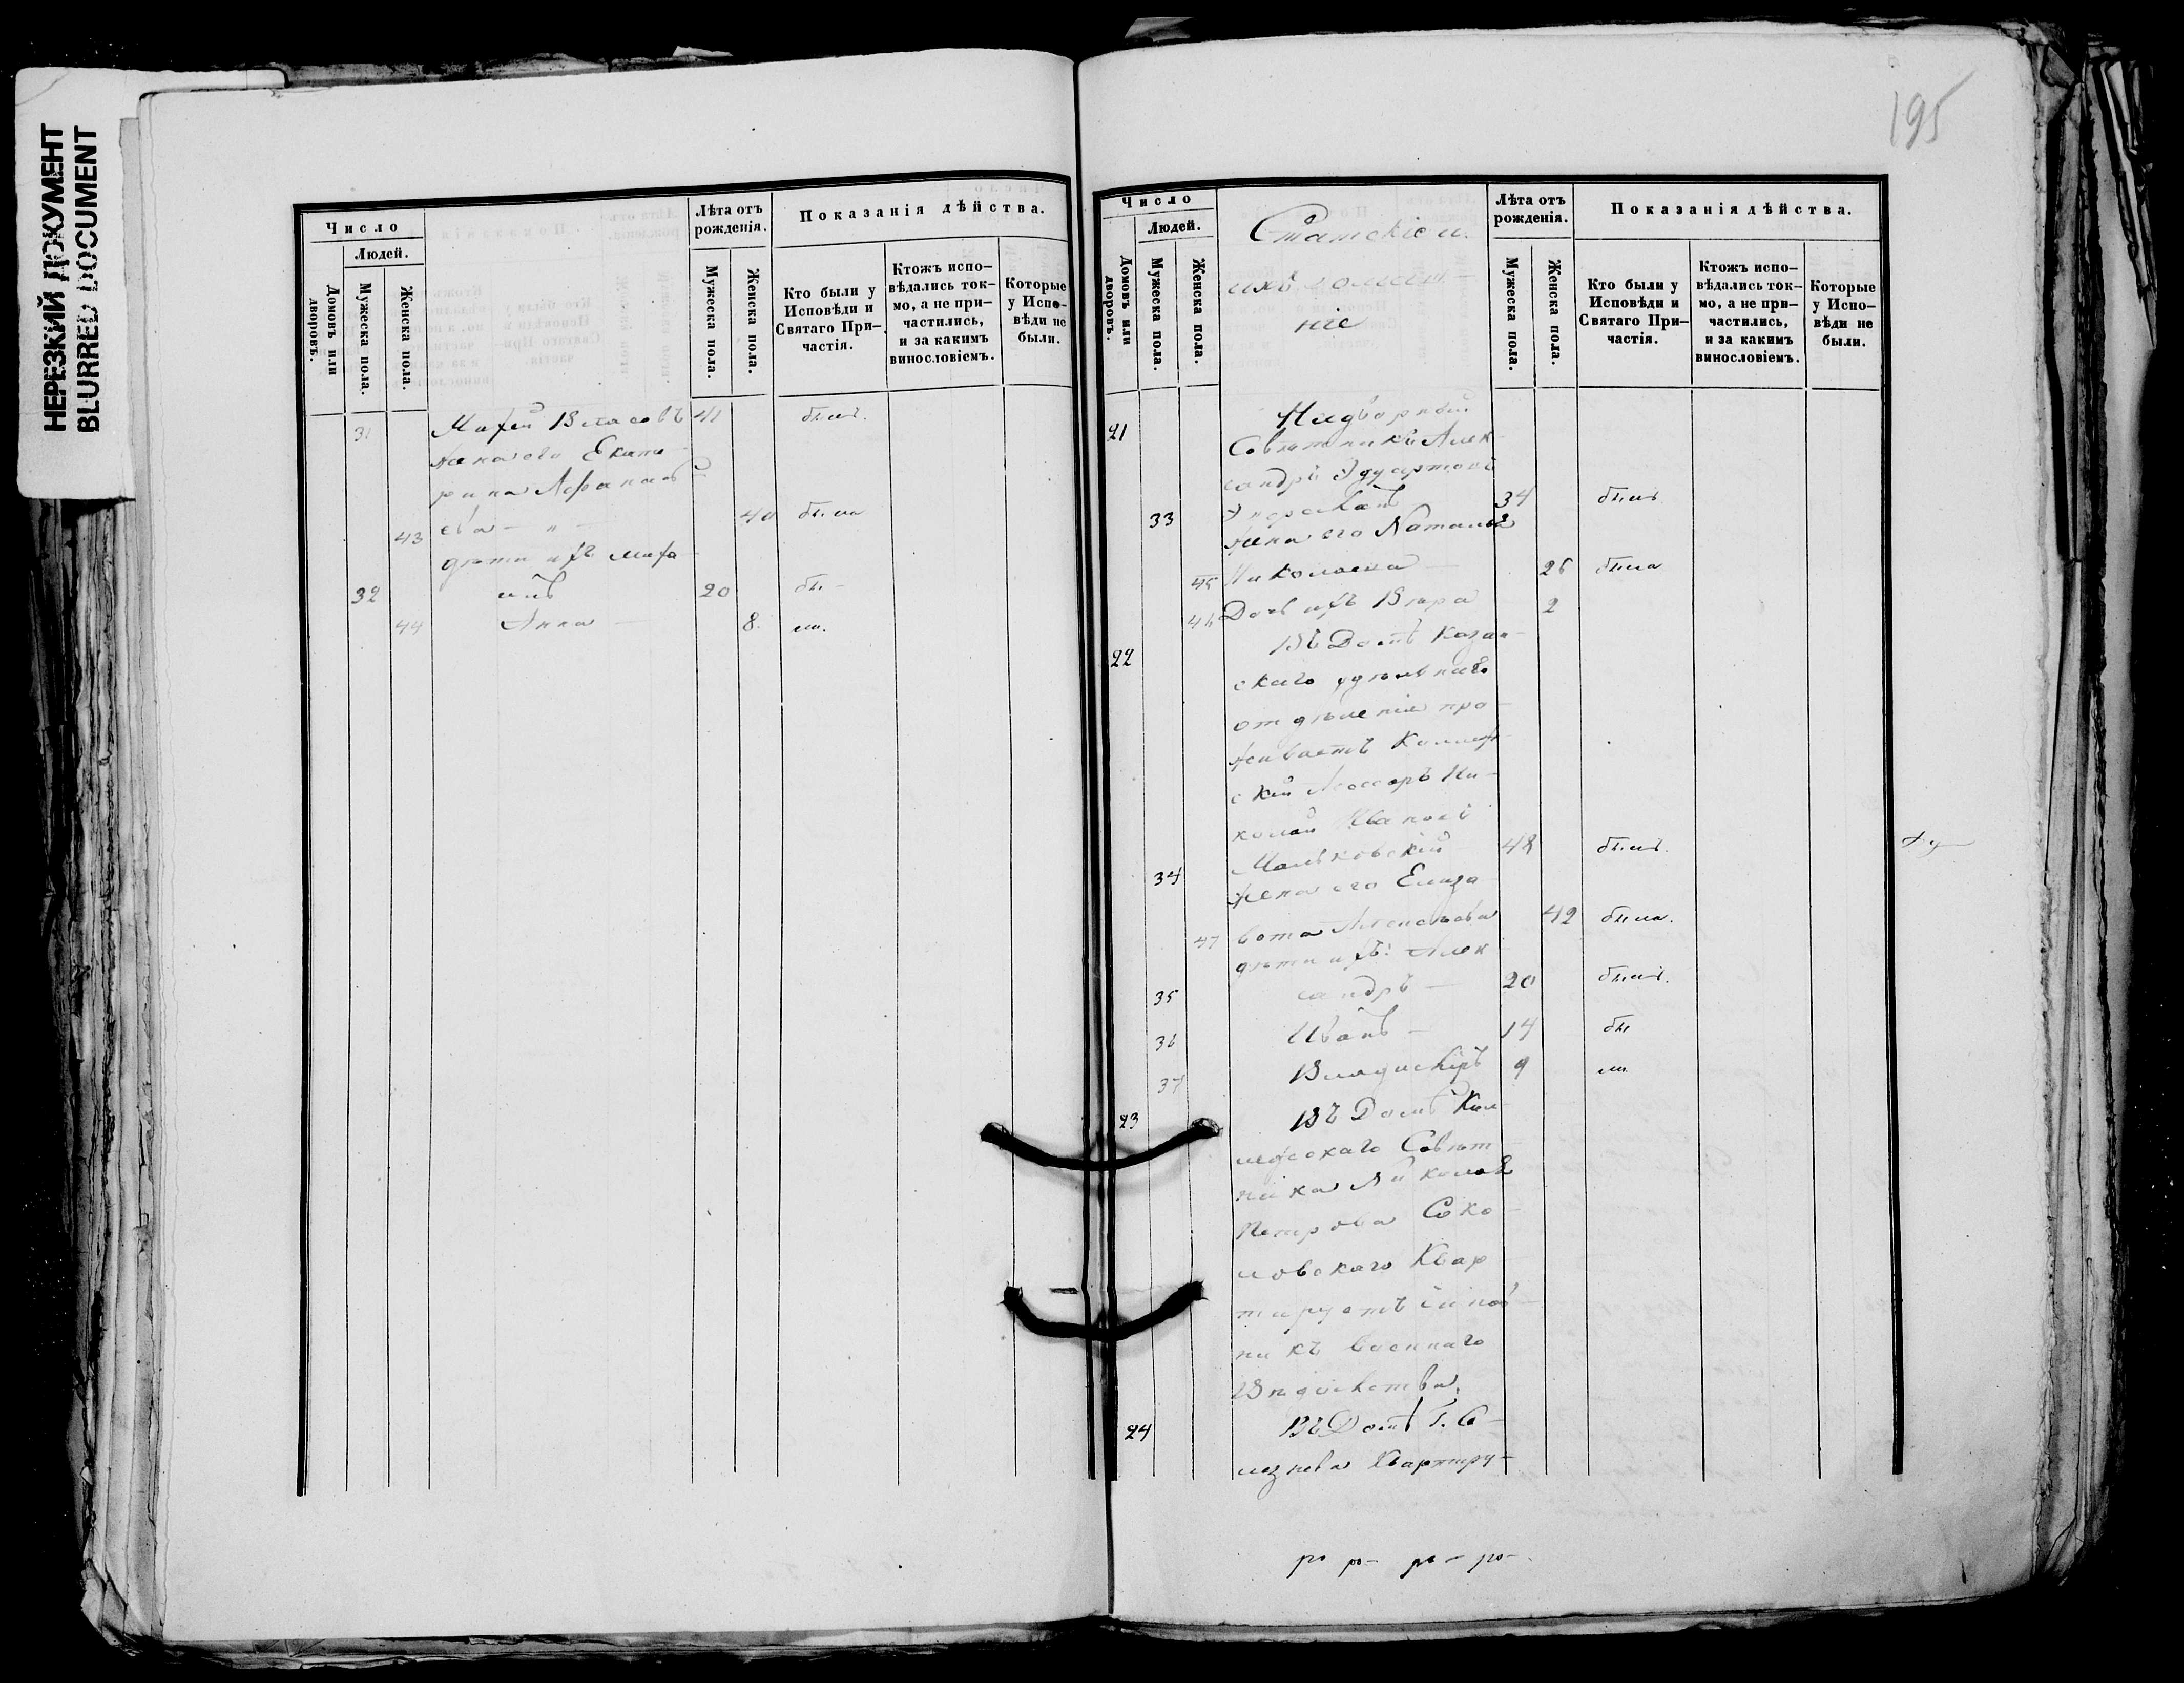 НЕРЕЗКИЙ ДОКУМЕНТ
BLURRED DOCUMENT
Число
Людей.
Домовъ или дворовъ.
Мужеска пола.
Женска пола.
Лѣта отъ рожденія.
Мужеска пола.
Женска пола.
Показанія дѣйства.
Кто были у Исповѣди и Святаго Причастія.
Ктожъ исповѣдались токмо, а не причастились, и за какимъ винословіемъ.
Которые у Исповѣди не были.
31 Власовъ 41 былъ.
жена его Екате
рина Афанась
43 ева 40 была
дѣти ихъ Миха
32 илъ 20 бы
44 Анна 8. ли.
195
Число
Людей.
Домовъ или дворовъ.
Мужеска пола.
Женска пола.
Статскіе и
ихъ домаш
ніе
Лѣта отъ рожденія.
Мужеска пола.
Женска пола.
Показанія дѣйства.
Кто были у Исповѣди и Святаго Причастія.
Ктожъ исповѣдались токмо, а не причастились, и за какимъ винословіемъ.
Которые у Исповѣди не были.
21 Надворный
Совѣтникъ Алек
сандръ
33 34 былъ
жена его Наталья
45 Николаева 26 была
46 Дочь ихъ Вѣра 2
22 Въ Домѣ Казан
скаго удѣльнаго
отдѣленія про
живаетъ Коллеж
скій Ассесоръ Ни
колай Иванов
34 Мальковскій 48 былъ.
жена его Елиза
47 вета 42 была.
дѣти ихъ: Алек
35 сандръ 20 былъ.
36 Иванъ 14 бы
37 Владиміръ 9 ли
23 Въ Домѣ Кол
лежскаго Совѣт
ника Николая
Петрова Соко
ловскаго Квар
тируетъ чинов
никъ военнаго
Вѣдомства.
24 Въ Домѣ Г. Се
лезнева Квартиру